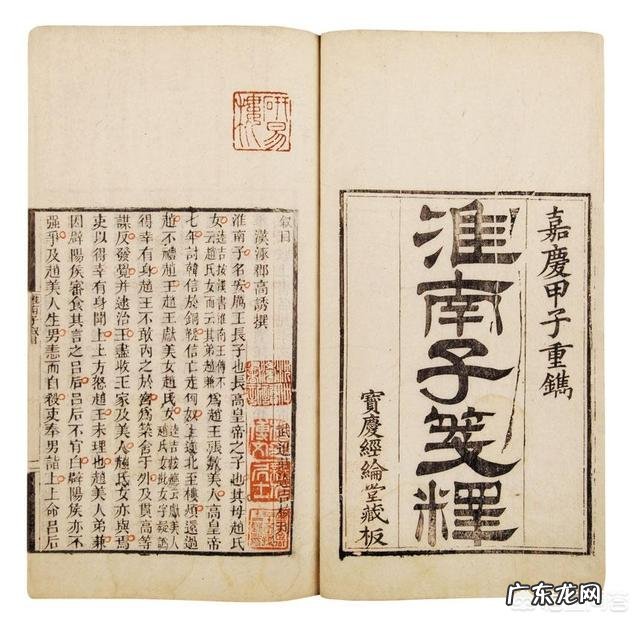 嘉慶甲子重鐫
淮南子箋釋
寶慶經綸堂藏板
研易樓
敘目
漢涿郡高誘撰
淮南子名安厲王長子也長高皇帝之子也其母趙氏
女逵吉按漢書淮南王傳不云趙氏女而云其弟趙兼為趙王張敖美人高皇帝
七年討韓信於銅鞮信亡走匈奴上遂北至樓煩還過
趙不禮趙王趙王獻美女趙氏女
得幸有身趙王不敢內之於宮為築舍于外及貫高等
謀反發覺并逮治王盡收王家及美人趙氏女亦與焉
吏以得幸有身聞上上方怒趙王未理也趙美人弟兼
因辟陽侯審食其言之呂后呂后不肯白辟陽侯亦不
強爭及趙美人生男恚而自殺吏奉男詣上上命呂后
广东龙网